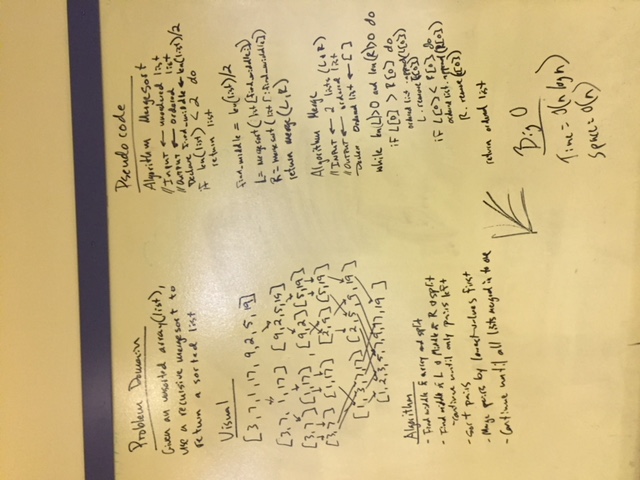 Problem Domain
Given an unsorted array(list),
use a recursive mergesort to
return a sorted list
Visual
[3,7,1,17, 9,2,5,19]
[3,7, 1,17] [9,2,5,19]
[3,7] [1,17] [9,2] [5,19]
[3,7] [1,17] [2,9] [5,19]
[1,3,7,17] [2,5,9,19]
[1,2,3,5,7,9,17,19]
Algorithm
- Find middle of array and split
- Find middle of L & Middle of R & split
- continue until only pairs left
- Sort pairs
- Merge pairs by lowest values first
- Continue until all lists merged in to one
Pseudocode
Algorithm MergeSort
// INPUT ← unordered list
// OUTPUT ← ordered list
Declare find_middle ← len(list)/2
if len(list) < 2 do
return list
find_middle = len(list)/2
L = mergesort(list[find_middle:])
R = mergesort(list[:find_middle])
return merge(L,R)
Algorithm Merge
// INPUT ← 2 lists (L & R)
// OUTPUT ← ordered list
Ordered list ← []
while len(L)>0 and len(R)>0 do
if L[0] > R[0] do
ordered list.append(L[0])
L.remove([0])
if L[0] < R[0] do
ordered list.append(R[0])
R.remove([0])
return ordered list
Big O
Time = O(n log n)
Space = O(n)